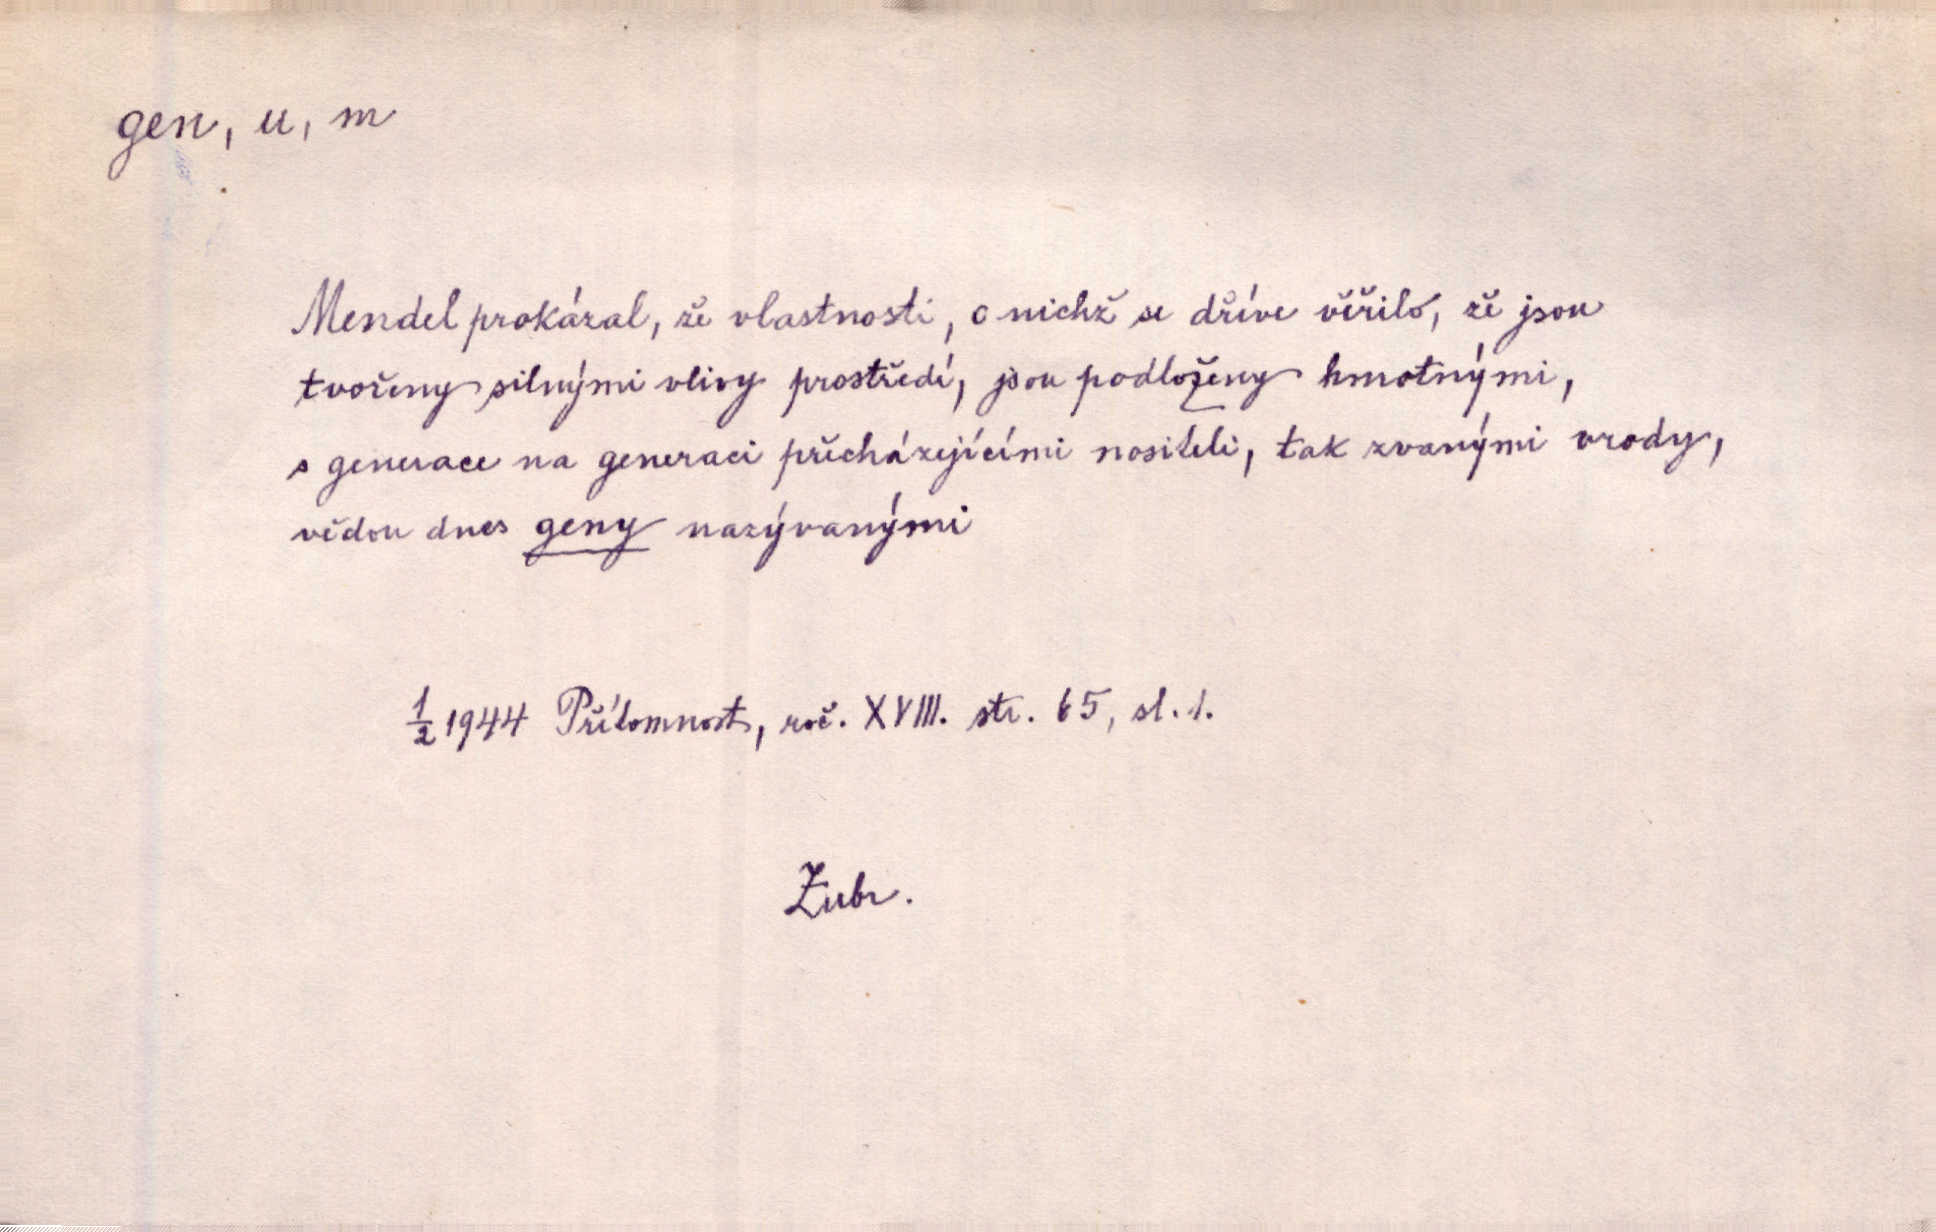 gen, u, m
Mendel prokázal, že vlastnosti, o nichž se dříve věřilo, že jsou
tvořeny silnými vlivy prostředí, jsou podloženy hmotnými,
s generace na generaci přecházejícími nositeli, tak zvanými vrody,
vědou dnes geny nazývanými
1/2 1944 Přítomnost, roč. XVIII. str. 65, sl. 1.
Zubr.